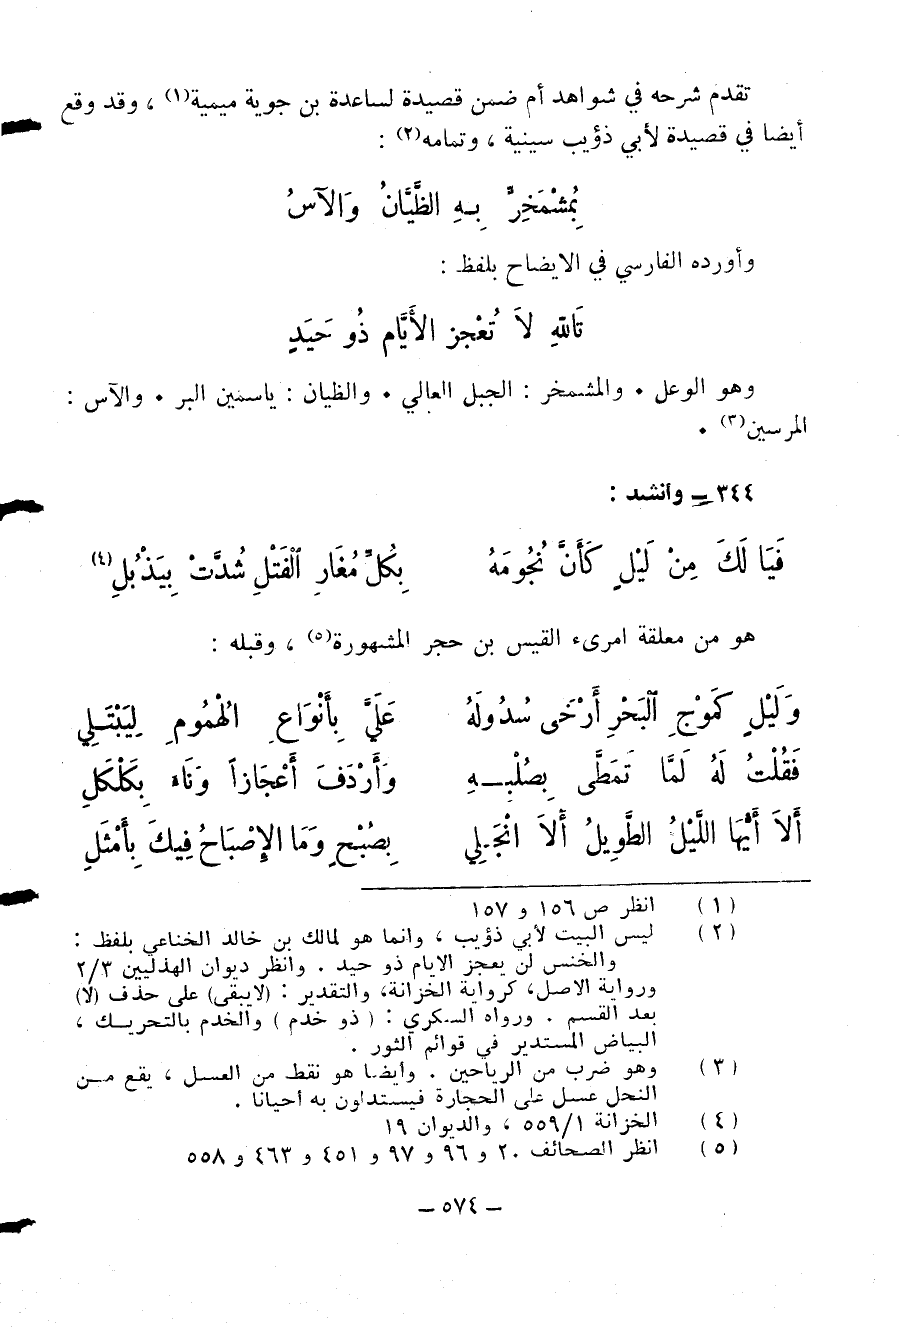 تقدم شرحه في شواهد أم ضمن قصيدة لساعدة بن جوية ميمية(١) ، وقد وقع
أيضا في قصيدة لأبي ذؤيب سينية ، وتمامه(٢) :
بِمُشْمَخِرٍّ بِـهِ الظَّيَّانُ وَالآسُ
وأورده الفارسي في الايضاح بلفظ :
تَاللهِ لاَ تُعْجِز الأَيَّام ذُو حَيَدٍ
وهو الوعل ٠ والمشمخر : الجبل العالي ٠ والظيان : ياسمين البر ٠ والآس :
المرسين(٣) ٠
٣٤٤ – وأنشد :
فَيَا لَكَ مِنْ لَيْلٍ كَأَنَّ نُجُومَهُ بِكُلِّ مُغَارِ الْفَتْلِ شُدَّتْ بِيَذْبُلِ(٤)
هو من معلقة امرىء القيس بن حجر المشهورة(٥) ، وقبله :
وَلَيْلٍ كَمَوْجِ الْبَحْرِ أَرْخَى سُدُولَهُ عَلَيَّ بِأَنْوَاعِ الْهُمُومِ لِيَبْتَـلِي
فَقُلْتُ لَهُ لَمَّا تَمَطَّى بِصُلْبِـــهِ وَأَرْدَفَ أَعْجَازاً وَنَاءَ بِكَلْكَلِ
أَلاَ أَيُّهَا اللَّيْلُ الطَّوِيلُ أَلاَ انْجَـلِي بِصُبْحٍ وَمَا الإِصْبَاحُ فِيكَ بِأَمْثَلِ
(١) انظر ص ١٥٦ و ١٥٧
(٢) ليس البيت لأبي ذؤيب ، وانما هو لمالك بن خالد الخناعي بلفظ :
والخنس لن يعجز الايام ذو حيد . وانظر ديوان الهذليين ٢/٣
ورواية الاصل، كرواية الخزانة، والتقدير : (لايبقى) على حذف (لا)
بعد القسم . ورواه السكري : ( ذو خدم ) والخدم بالتحريـك ،
البياض المستدير في قوائم الثور .
(٣) وهو ضرب من الرياحين . وأيضا هو نقط من العسل ، يقع مـن
النحل عسل على الحجارة فيستدلون به أحيانا .
(٤) الخزانة ٥٥٩/١ ، والديوان ١٩
(٥) انظر الصحائف ٢٠ و ٩٦ و ٩٧ و ٤٥١ و ٤٦٣ و ٥٥٨
– ٥٧٤ –